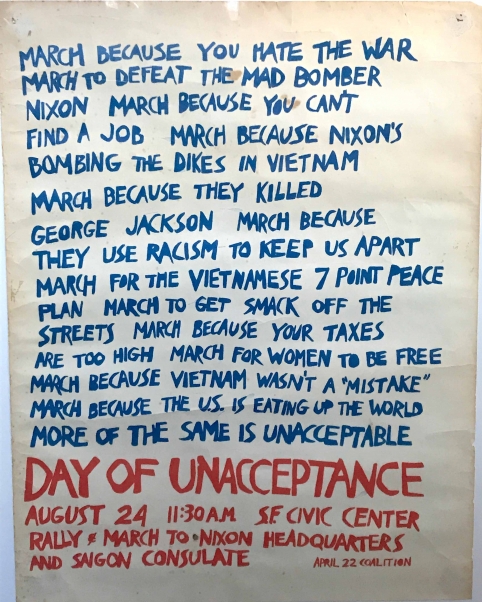 MARCH BECAUSE YOU HATE THE WAR
MARCH TO DEFEAT THE MAD BOMBER
NIXON MARCH BECAUSE YOU CAN'T
FIND A JOB MARCH BECAUSE NIXON'S
BOMBING THE DIKES IN VIETNAM
MARCH BECAUSE THEY KILLED
GEORGE JACKSON MARCH BECAUSE
THEY USE RACISM TO KEEP US APART
MARCH FOR THE VIETNAMESE 7 POINT PEACE
PLAN MARCH TO GET SMACK OFF THE
STREETS MARCH BECAUSE YOUR TAXES
ARE TOO HIGH MARCH FOR WOMEN TO BE FREE
MARCH BECAUSE VIETNAM WASN'T A "MISTAKE"
MARCH BECAUSE THE U.S. IS EATING UP THE WORLD
MORE OF THE SAME IS UNACCEPTABLE
DAY OF UNACCEPTANCE
AUGUST 24 11:30 A.M. S.F. CIVIC CENTER
RALLY & MARCH TO NIXON HEADQUARTERS
AND SAIGON CONSULATE APRIL 22 COALITION